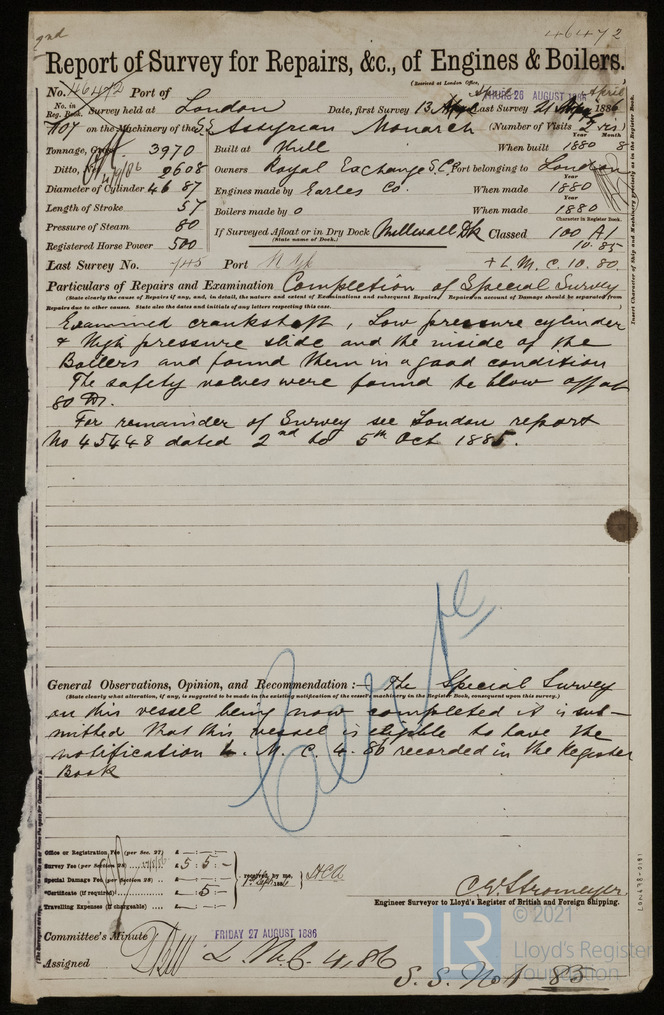 2nd
46472
Report of Survey for Repairs, &c., of Engines & Boilers.
(Received at London Office, THURS 26 AUGUST 1886
No. 46472 Port of
No. in Reg. Book. Survey held at London Date, first Survey 13 April Last Survey 21 April 1886
1107 on the Machinery of the S.S. Assyrian Monarch (Number of Visits 2
Tonnage, Gross 3970 Built at Hull When built 1880 8
Ditto, Net 2608 Owners Royal Exchange S.C. Port belonging to London
Diameter of Cylinder 46 87 Engines made by Earles Co. When made 1880
Length of Stroke 57 Boilers made by o When made 1880
Pressure of Steam 80 If Surveyed Afloat or in Dry Dock Millwall Dk Classed 100 A1
(State name of Dock.) Character in Register Book.
Registered Horse Power 500 10.85
Last Survey No. 145 Port N Yk + L.M.C. 10.80.
Particulars of Repairs and Examination Completion of Special Survey
(State clearly the cause of Repairs if any, and, in detail, the nature and extent of Examinations and subsequent Repairs. Repairs on account of Damage should be separated from
Repairs due to other causes. State also the dates and initials of any letters respecting this case.
Examined crankshaft, Low pressure cylinder
& High pressure slide and the inside of the
Boilers and found them in a good condition
The safety valves were found to blow off at
80 lbs.
For remainder of Survey see London report
No 45448 dated 2nd to 5th Oct 1885.
General Observations, Opinion, and Recommendation :— The Special Survey
(State clearly what alteration, if any, is suggested to be made in the existing notification of the vessel's machinery in the Register Book, consequent upon this survey.)
on this vessel being now completed it is sub-
mitted that this vessel is eligible to have the
notification L.M.C. 4.86 recorded in the Register
Book
Office or Registration Fee (per Sec. 27) £ - : - : -
Survey Fee (per Section 28) £ 5 : 5 : -
Special Damage Fee (per Section 28) £ - : - : -
*Certificate (if required) £ - : 5 : -
Travelling Expenses (if chargeable) £ - : - : -
received by me,
C.E. Stromeyer
Engineer Surveyor to Lloyd's Register of British and Foreign Shipping.
Committee's Minute FRIDAY 27 AUGUST 1886
Assigned L.M.C. 4,86
S.S. No 1 - 85
© 2021
LR Lloyd's Register
Foundation